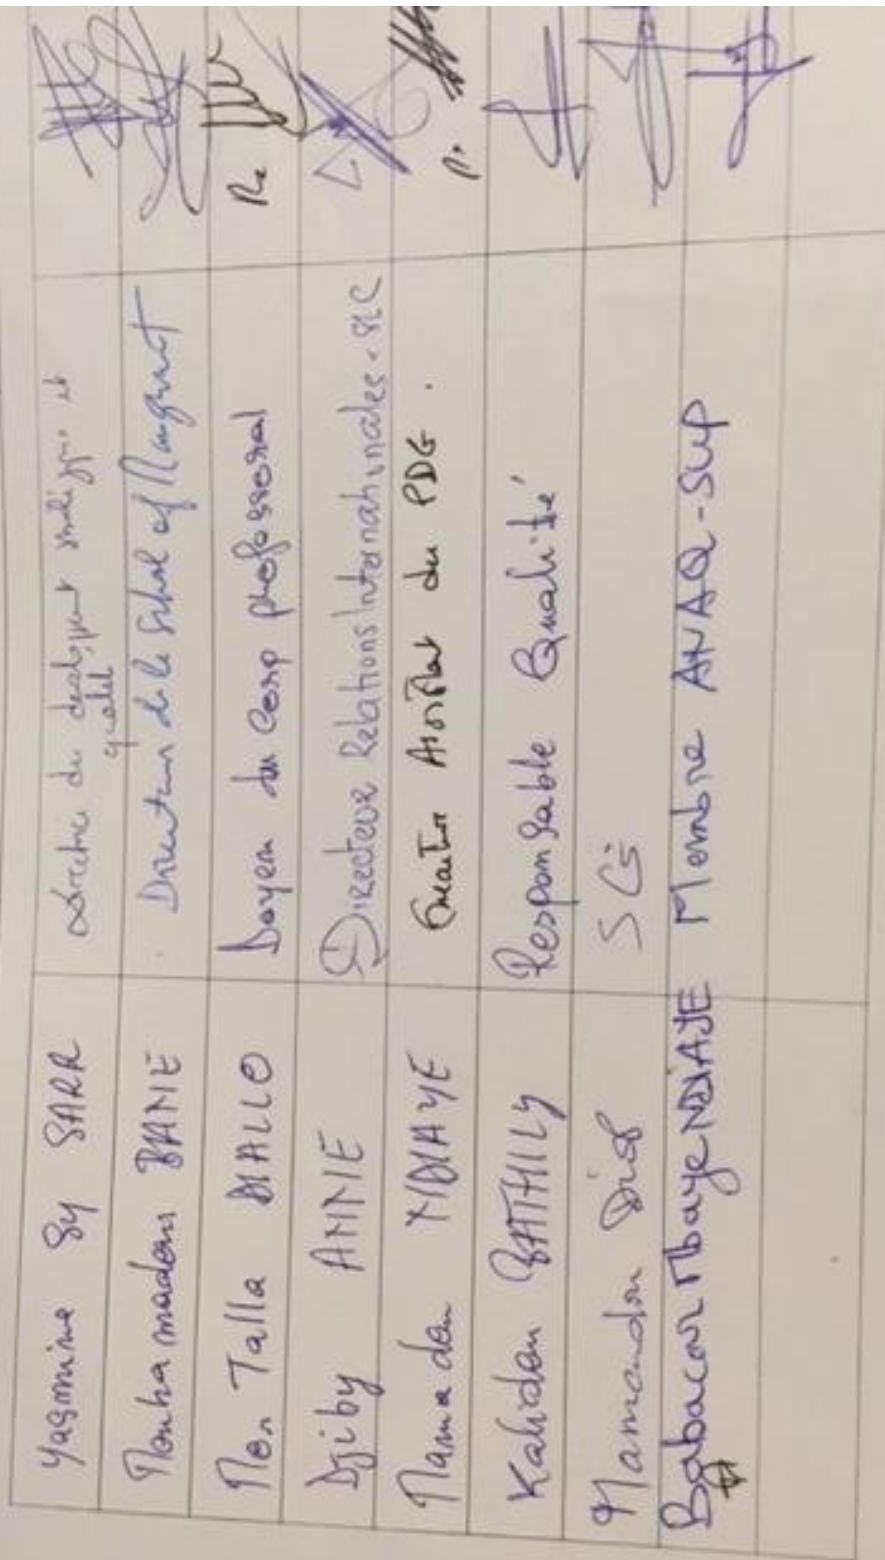 Yasmine Sy SARR Directrice du qualité et
Mouhamadou BANE Directeur de la School of Management
Mor Talla DIALLO Doyen du Corp professoral
Djiby ANNE Directeur Relations Internationales
Mamadou NDIAYE Assistant du PDG.
Kalidou BATHILY Responsable Qualité
Mamadou Diop SG
Babacar Mbaye NDIAYE Membre ANAQ-SUP